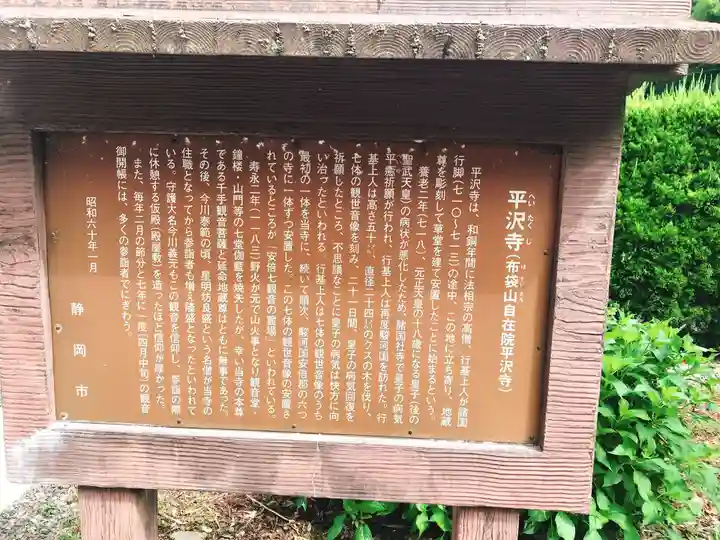 へいたくじ
平沢寺(布袋山自在院平沢寺)
平沢寺は、和銅年間に法相宗の高僧、行基上人が諸国
行脚(七一〇~七一三)の途中、この地に立ち寄り、地蔵
尊を彫刻して草堂を建て安置したことに始まるという。
養老二年(七一八)、元正天皇の十八歳になる皇子(後の
聖武天皇)の病状が悪化したため、諸国社寺で皇子の病気
平癒祈願が行われ、行基上人は再度駿河国を訪れた。行
基上人は高さ五十㍍、直径二十四㍍のクスの木を伐り、
七体の観世音像を刻み、二十一日間、皇子の病気回復を
祈願したところ、不思議なことに皇子の病気は快方に向
い治ったといわれる。行基上人は七体の観世音像のうち
最初の一体を当寺に、続いて順次、駿河国安倍郡の六つ
の寺に一体ずつ安置した。この七体の観世音像の安置さ
れているところが「安倍七観音の霊場」といわれている。
寿永二年(一一八三)野火が元で山火事となり観音堂・
鐘楼・山門等の七堂伽藍を焼失したが、幸い当寺の本尊
である千手観音菩薩と延命地蔵尊はともに無事であった。
その後、今川泰範の頃、星明坊良盛という名僧が当寺の
住職となってから参詣者も増え隆盛となったといわれて
いる。守護大名今川義元もこの観音を信仰し、参詣の際
に休憩する仮殿(殿屋敷)を造ったほど信仰が厚かった。
また、毎年二月の節分と七年に一度(四月中旬)の観音
御開帳には、多くの参詣者でにぎわう。
昭和六十年一月
静岡市